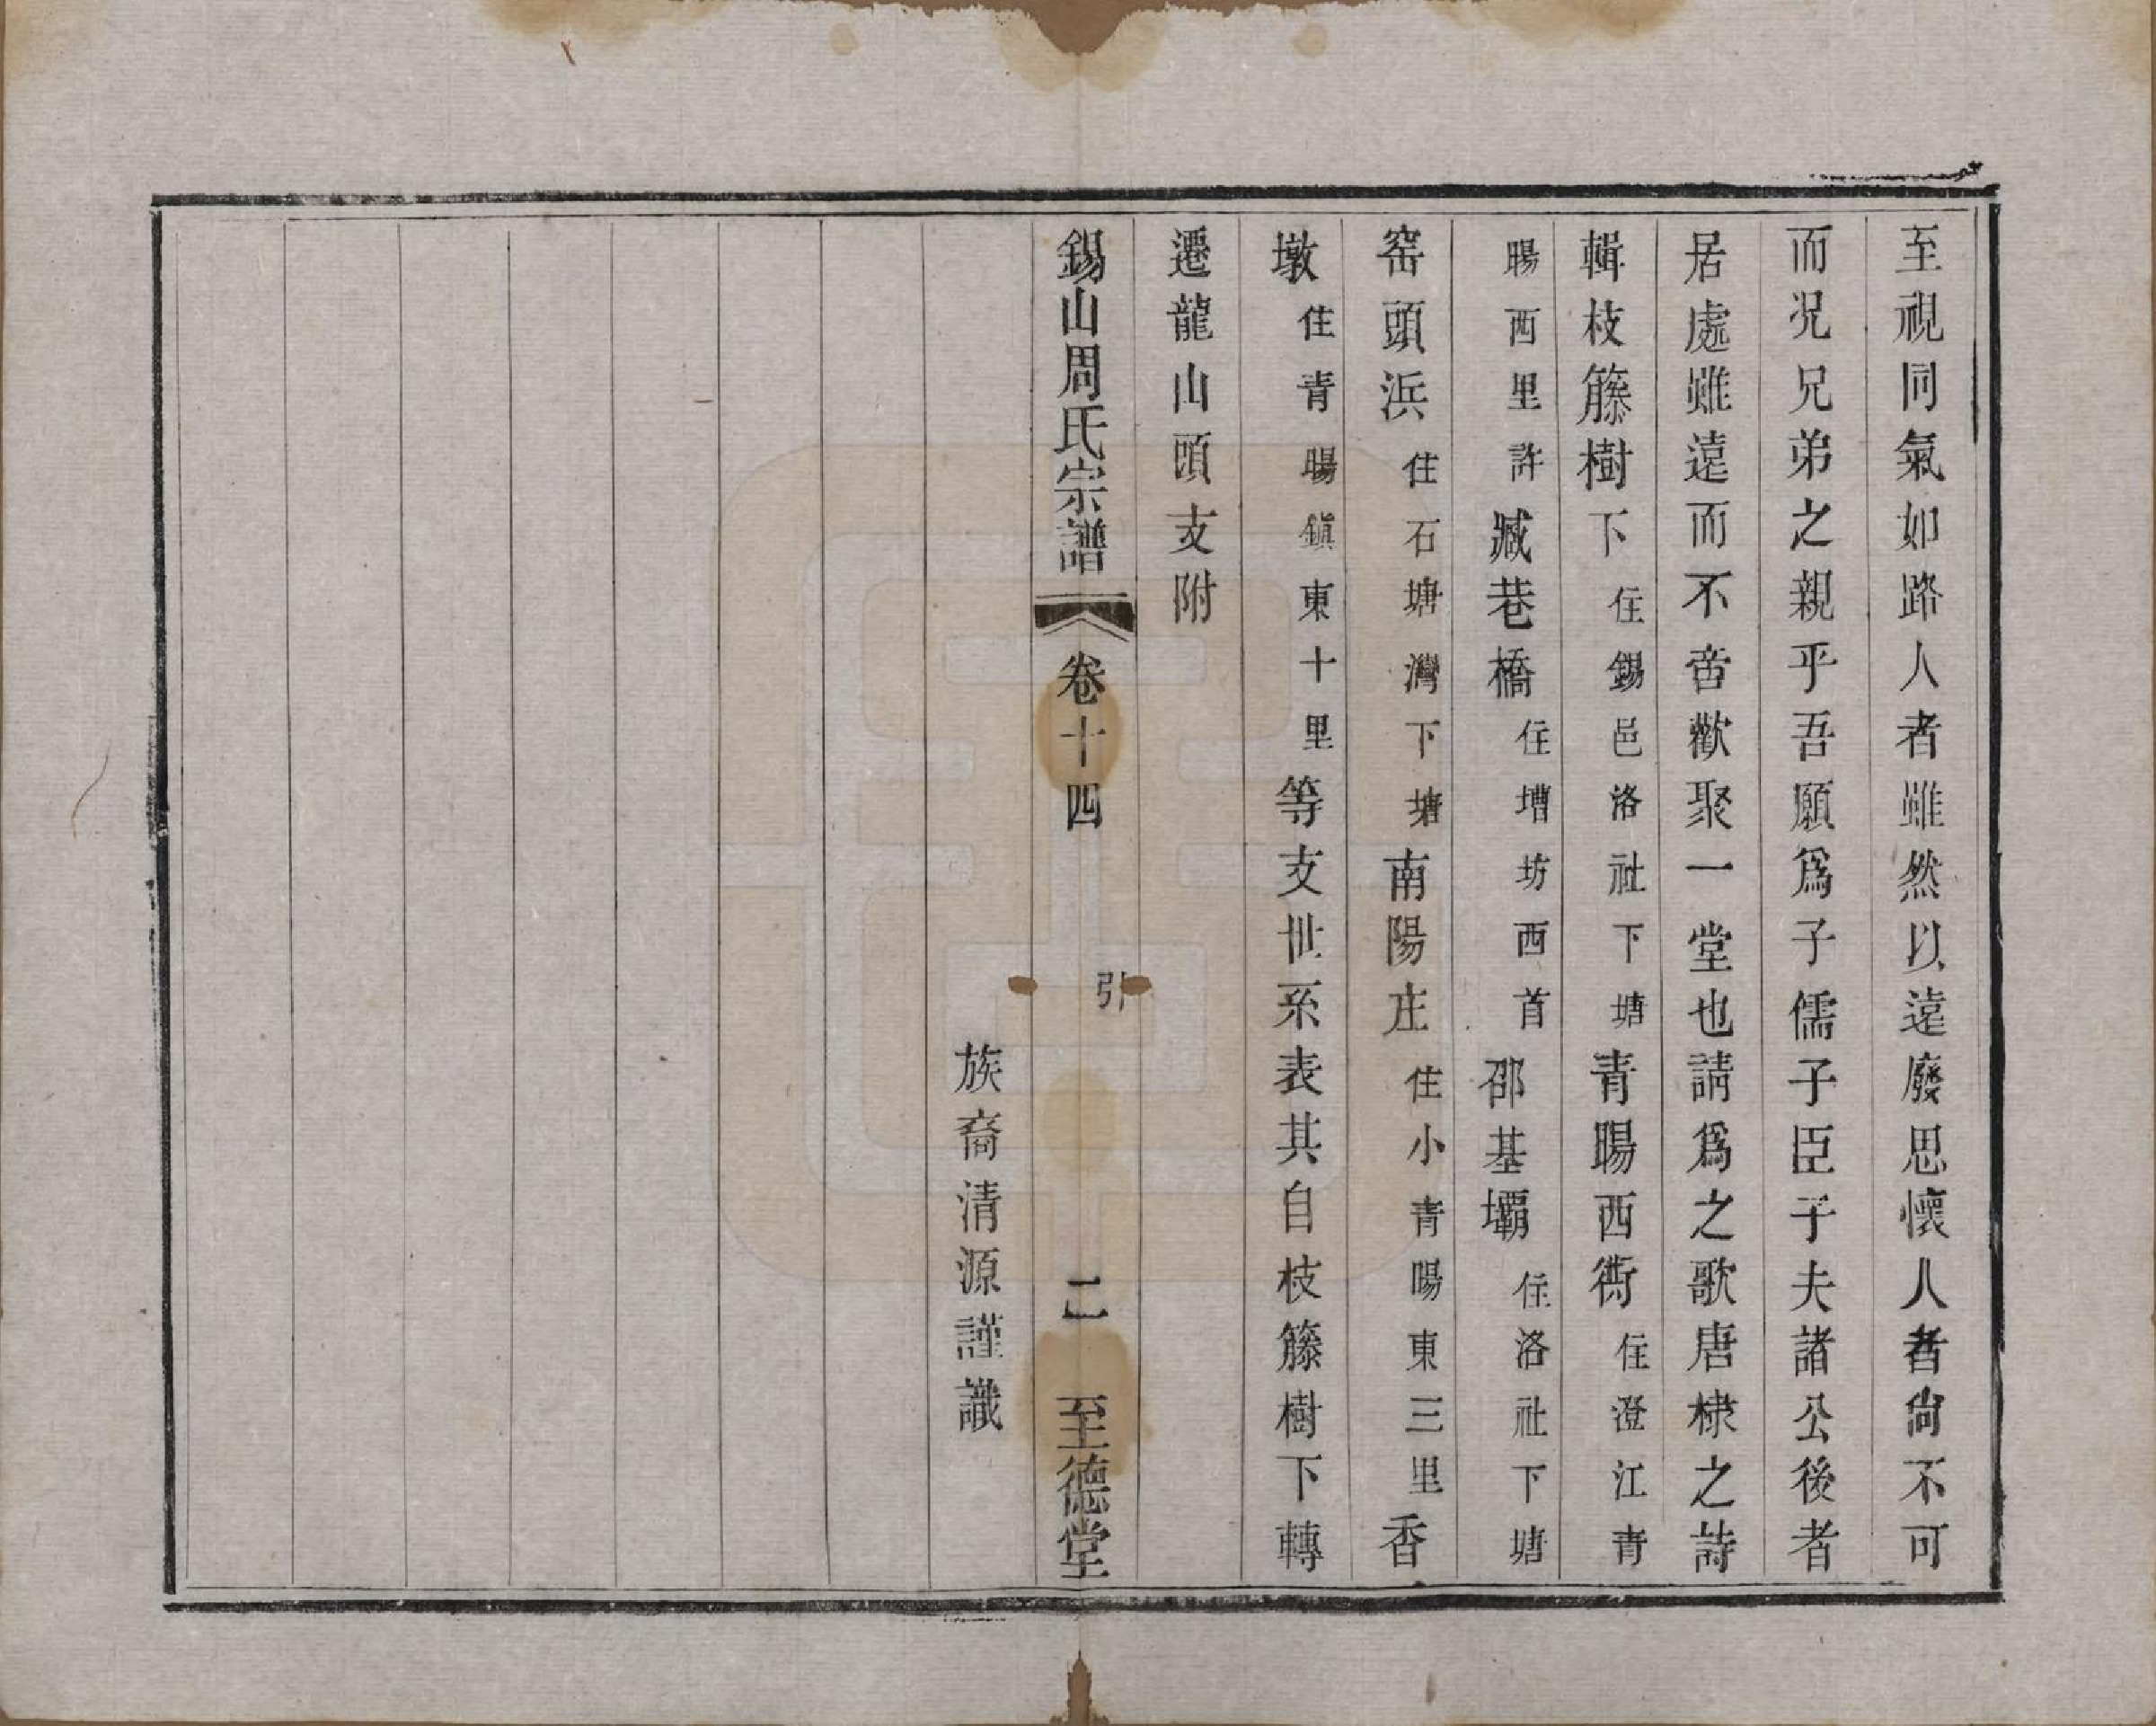 至視同氣如路人者雖然以遠廢思懷人者尙不可
而况兄弟之親乎吾願爲子儒子臣子夫諸公後者
居處雖遠而不啻歡聚一堂也請爲之歌唐棣之詩
輯枝籐樹下住錫邑洛社下塘青暘西街住澄江青
暘西里許臧巷橋住墰坊西首邵基壩住洛社下塘
窑頭浜住石塘灣下塘南陽庄住小青暘東三里香
墩住青暘鎭東十里等支世系表其自枝籐樹下轉
遷龍山頭支附
錫山周氏宗譜 卷十四 引 二 至德堂
族裔清源謹識